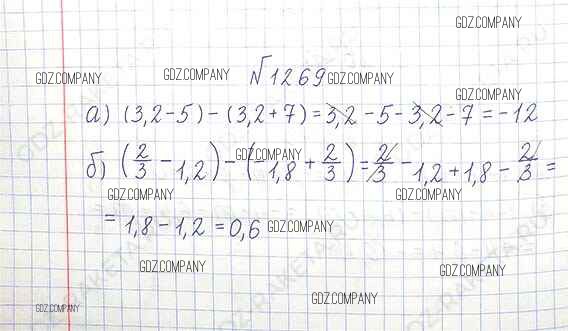 GDZ.COMPANY
№1269
GDZ.COMPANY GDZ.COMPANY GDZ.COMPANY
GDZ.COMPANY
а) (3,2-5)-(3,2+7)=3,2-5-3,2-7=-12
GDZ.COMPANY
б) (2/3-1,2)-(-1,8+2/3)=2/3-1,2+1,8-2/3=
GDZ.COMPANY GDZ.COMPANY
=1,8-1,2=0,6
GDZ.COMPANY
GDZ.COMPANY GDZ.COMPANY
GDZ.COMPANY GDZ.COMPANY
GDZ-RAKETA.RU